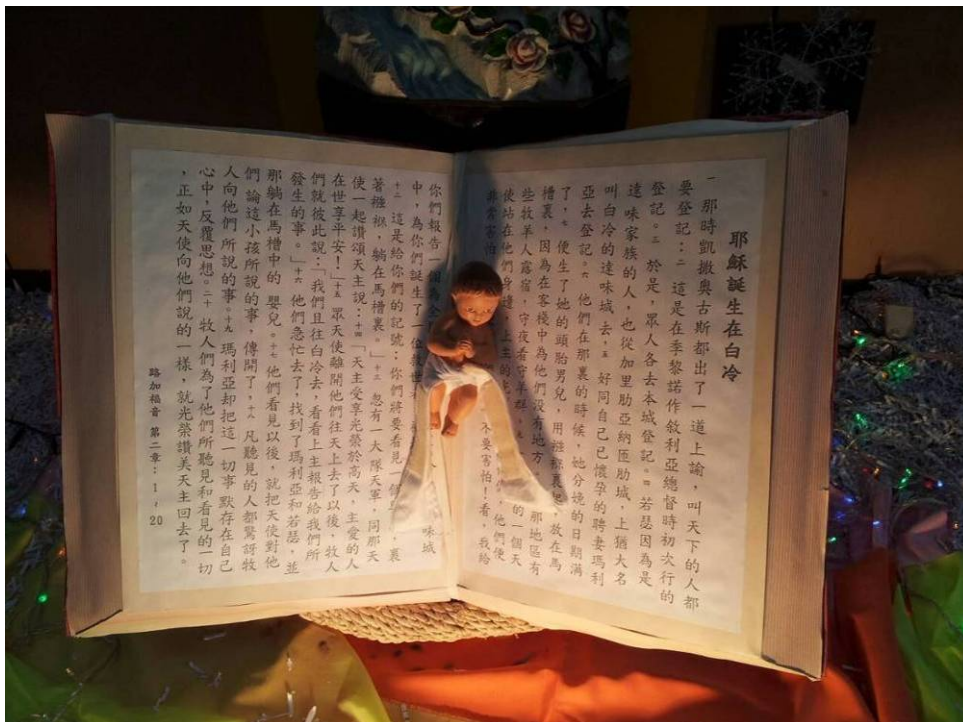 耶穌誕生在白冷
一 那時凱撒奧古斯都出了一道上諭，叫天下的人都
要登記：二 這是在季黎諾作敘利亞總督時初次行的
登記。三 於是，眾人各去本城登記。四 若瑟因為是
達味家族的人，也從加里肋亞納匝肋城，上猶大名
叫白冷的達味城去，五 好同自己已懷孕的聘妻瑪利
亞去登記。六 他們在那裏的時候，她分娩的日期滿
了，七 便生了她的頭胎男兒，用襁褓裹起，放在馬
槽裏，因為在客棧中為他們沒有地方 那地區有
些牧羊人露宿，守夜看守羊群。 的一個天
使站在他們身邊，上主的光 他們便
非常害怕 不要害怕！看，我給
你們報告一個為
中，為你們誕生了一位救世 味城
十二 這是給你們的記號：你們將要看見一個 裹
著襁褓，躺在馬槽裏。」十三 忽有一大隊天軍，同那天
使一起讚頌天主說：十四 「天主受享光榮於高天，主愛的人
在世享平安！」十五 眾天使離開他們往天上去了以後，牧人
們就彼此說：「我們且往白冷去，看看上主報告給我們所
發生的事。」十六 他們急忙去了，找到了瑪利亞和若瑟，並
那躺在馬槽中的嬰兒。十七 他們看見以後，就把天使對他
們論這小孩所說的事，傳開了，十八 凡聽見的人都驚訝牧
人向他們所說的事。十九 瑪利亞却把這一切事默存在自己
心中，反覆思想。二十 牧人們為了他們所聽見和看見的一切
，正如天使向他們說的一樣，就光榮讚美天主回去了。
路加福音 第二章：1 ~ 20